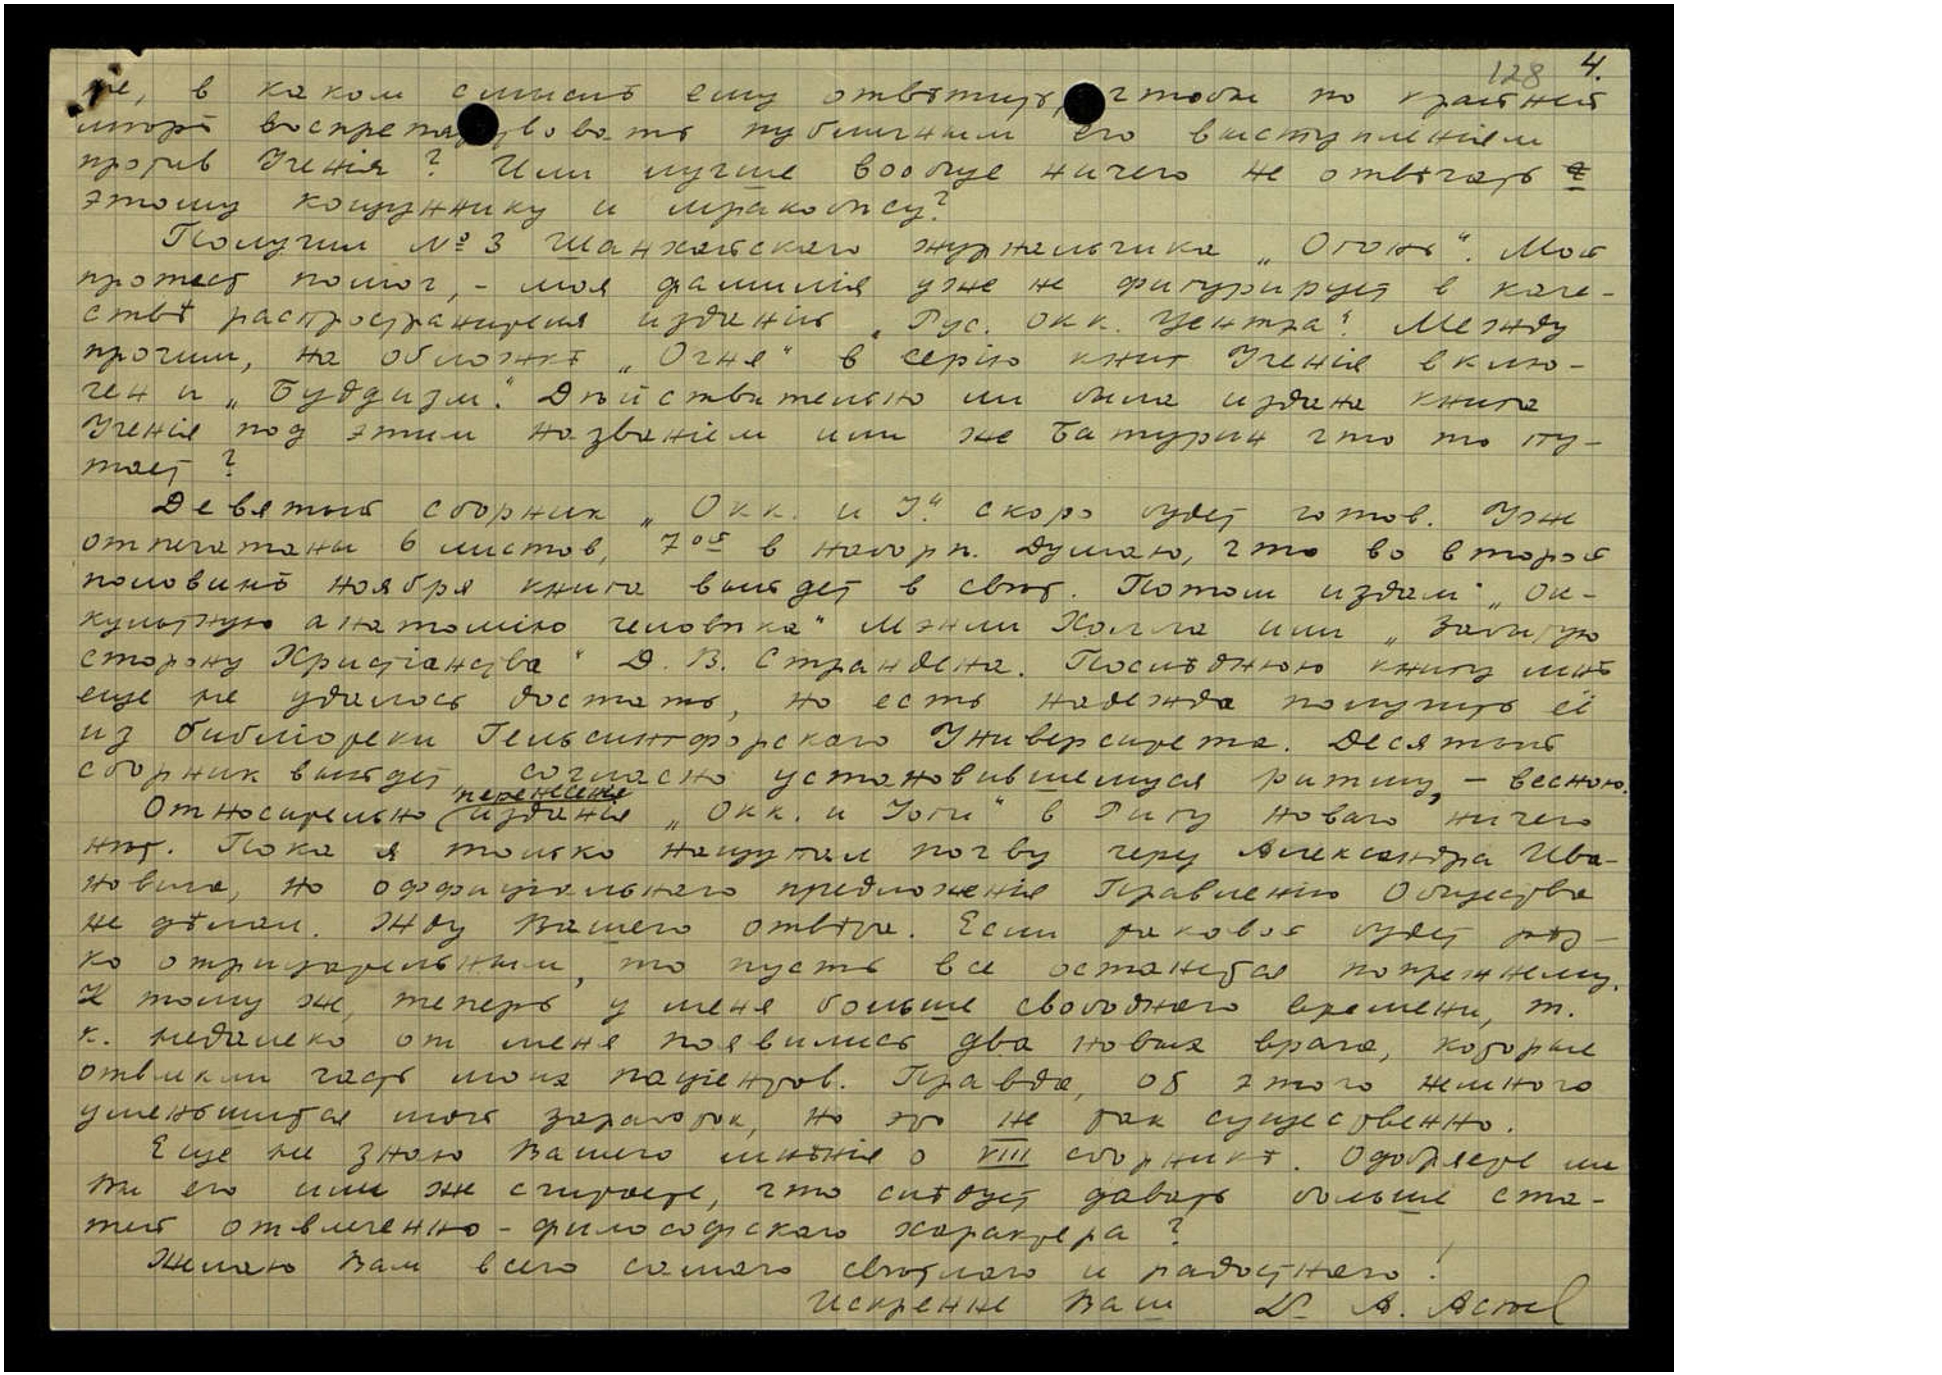 128 4.
же, в каком смыслѣ ему отвѣтить, чтобы по крайней
мѣрѣ воспрепятствовать публичным его выступленіям
против Ученія? Или лучше вообще ничего не отвѣчать
этому кощуннику и мракобѣсу?
Получил № 3 Шанхайскаго журнальчика „Огонь“. Мой
протест помог, - моя фамилія уже не фигурирует в каче-
ствѣ распространителя изданій „Рус. Окк. Центра“. Между
прочим, на обложкѣ „Огня“ в серію книг Ученія вклю-
чен и „Буддизм“. Дѣйствительно ли была издана книга
Ученія под этим названіем или же Батурин что то пу-
тает?
Девятый сборник „Окк. и І.“ скоро будет готов. Уже
отпечатаны 6 листов, 7ой в наборѣ. Думаю, что во второй
половинѣ ноября книга выйдет в свѣт. Потом издам „Ок-
культную анатомію человѣка“ Мэнли Холла или „Забытую
сторону Христіанства“ Д. В. Страндена. Послѣднюю книгу мнѣ
еще не удалось достать, но есть надежда получить её
из библіотеки Гельсингфорскаго Университета. Десятый
сборник выйдет, согласно установившемуся ритму, - весною.
Относительно перенесенія изданія „Окк. и Іоги“ в Ригу новаго ничего
нѣт. Пока я только нащупал почву через Александра Ива-
новича, но оффиціальнаго предложенія Правленію Общества
не дѣлал. Жду Вашего отвѣта. Если таковой будет рѣз-
ко отрицательным, то пусть все останется попрежнему.
К тому же, теперь у меня больше свободнаго времени, т.
к. недалеко от меня появились два новых врача, которые
отвлекли часть моих паціентов. Правда, от этого немного
уменьшится мой заработок, но это не так существенно.
Еще не знаю Вашего мнѣнія о VIII сборникѣ. Одобряете ли
Вы его или же считаете, что слѣдует давать больше ста-
тей отвлеченно-философскаго характера?
Желаю Вам всего самаго свѣтлаго и радостнаго!
Искренне Ваш Dr А. Асѣев